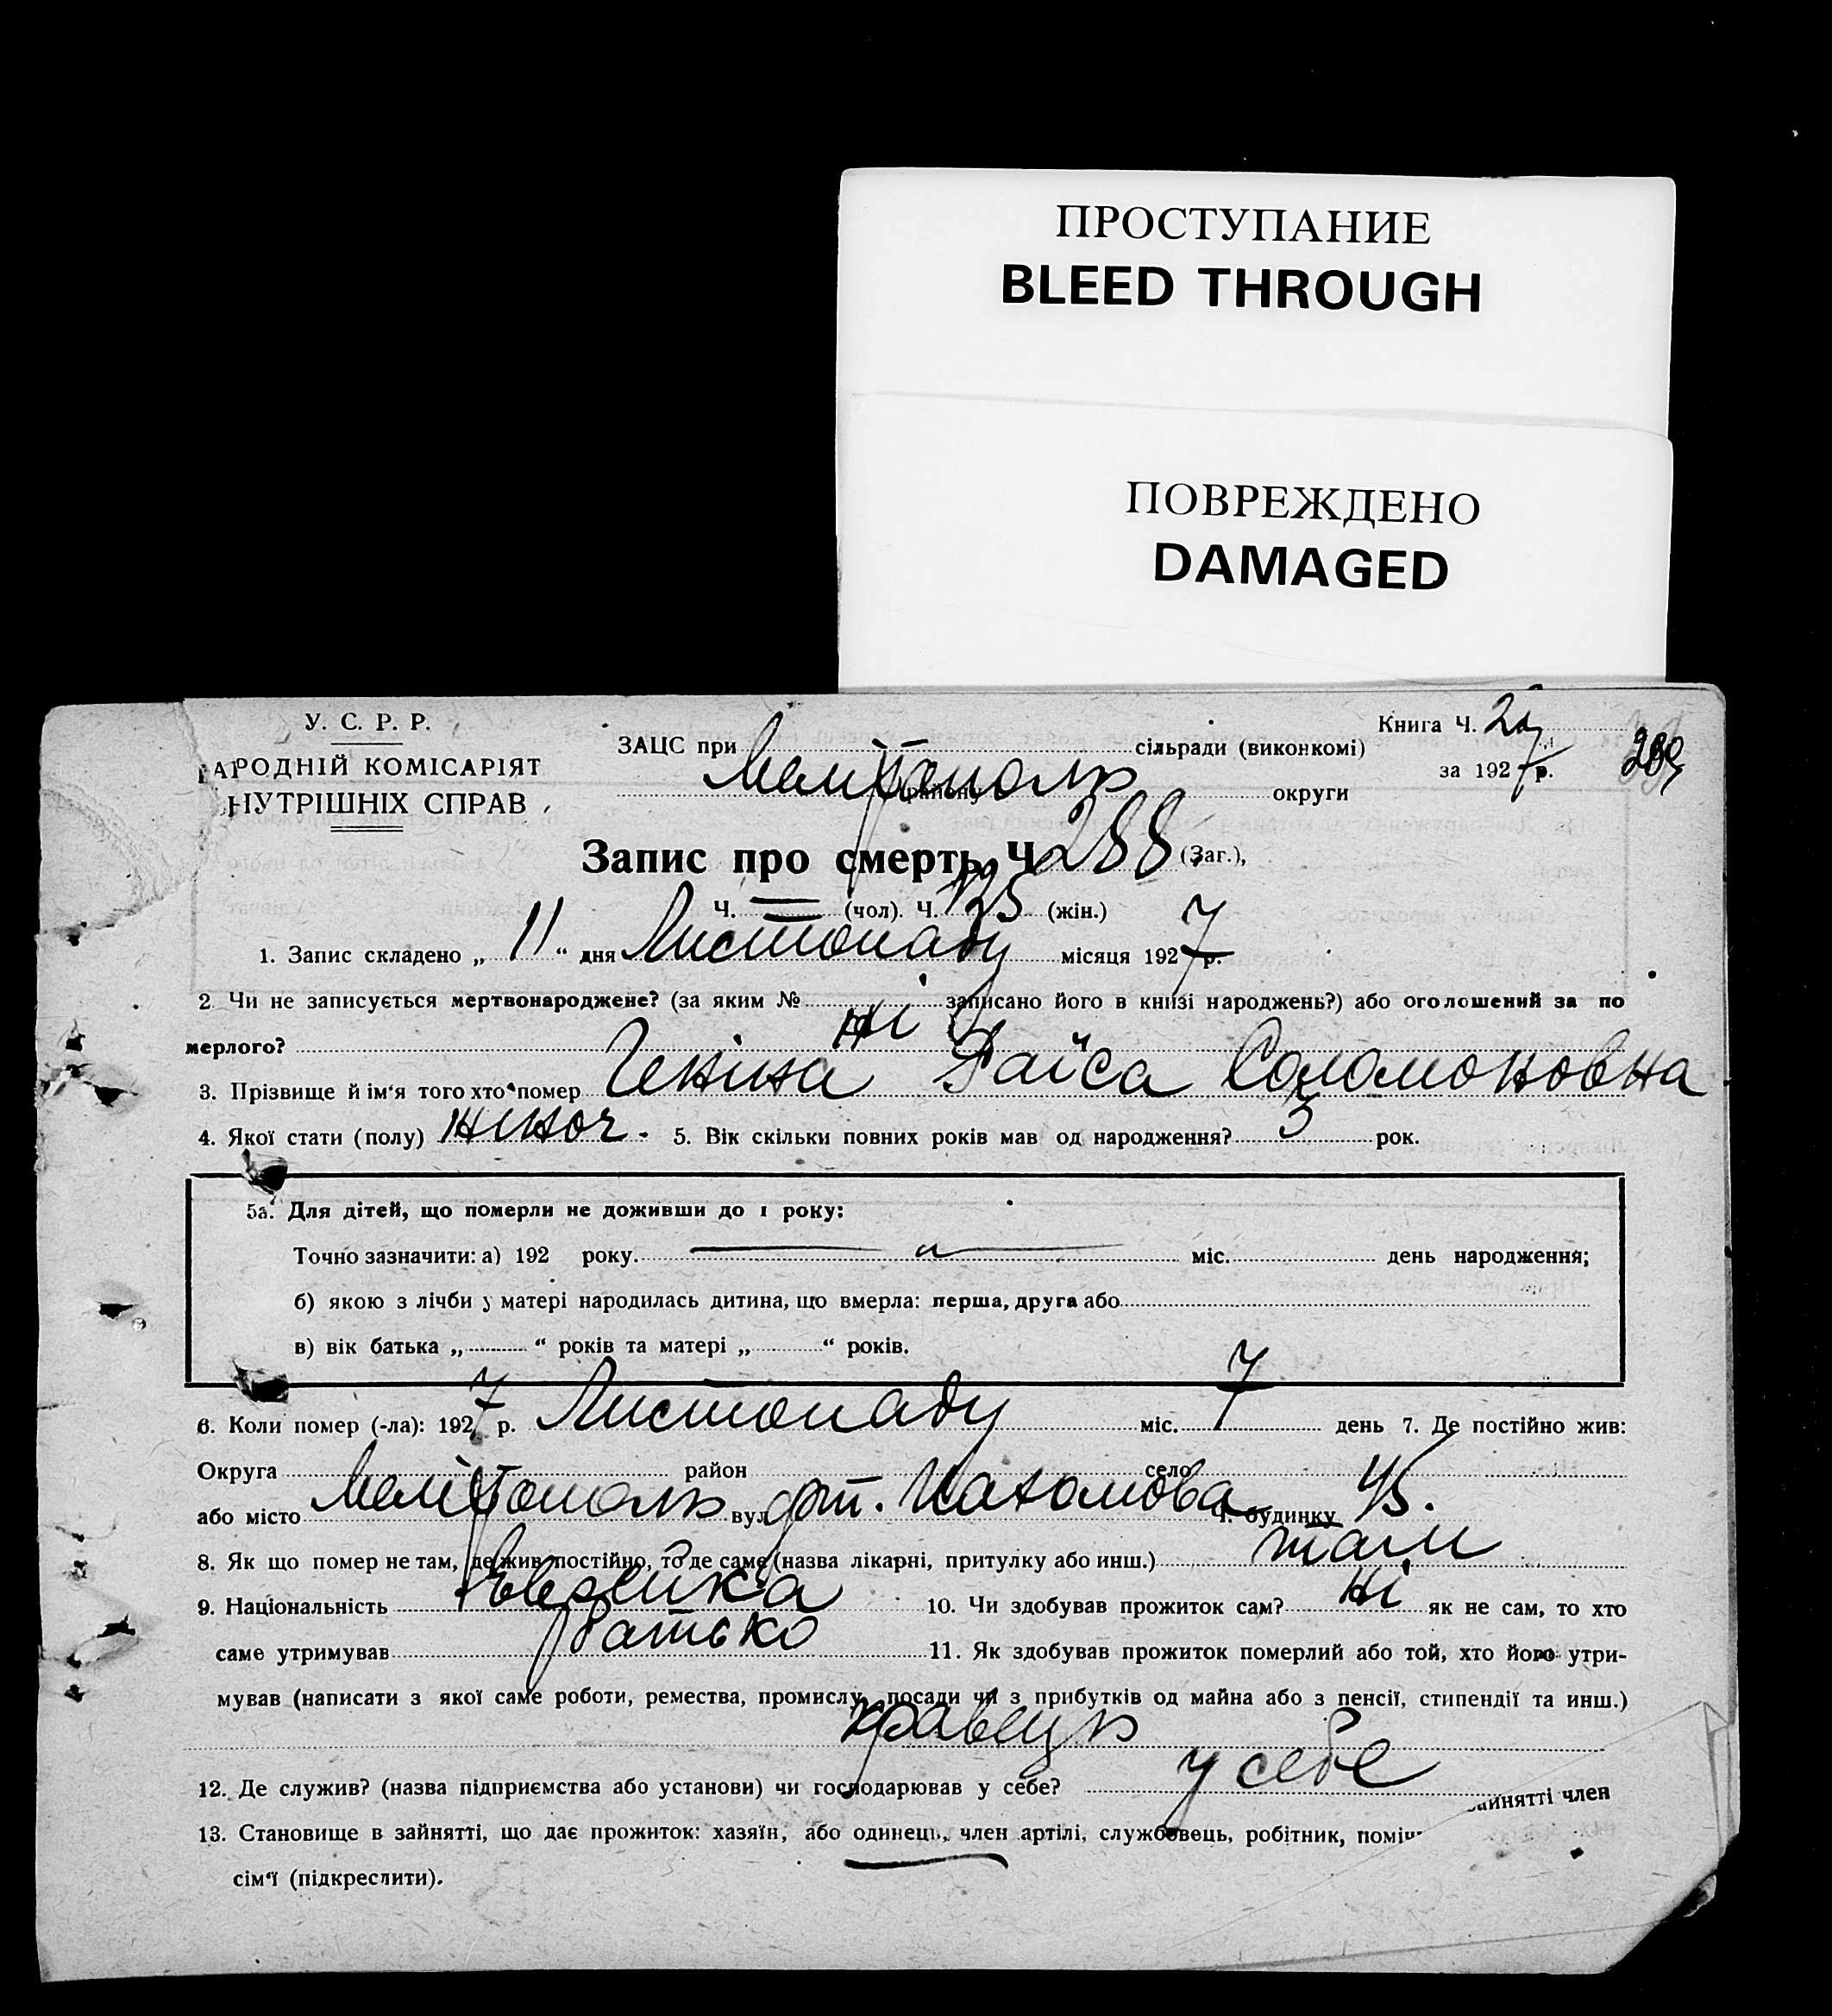 ПРОСТУПАНИЕ
BLEED THROUGH
ПОВРЕЖДЕНО
DAMAGED
У. С. Р. Р.
АРОДНІЙ КОМІСАРІЯТ
НУТРІШНІХ СПРАВ
ЗАЦС при сільради (виконкомі)
Мелітополь району округи
Книга Ч. 2
за 1927 р.
Запис про смерть Ч. 288 (Заг.),
Ч. — (чол). Ч. 125 (жін.)
1. Запис складено „ 11 “ дня Листопаду місяця 1927 р.
2. Чи не записується мертвонароджене? (за яким № записано його в книзі народжень?) або оголошений за по
мерлого? ні
3. Прізвище й ім‘я того хто помер Генина Раїса Соломоновна
4. Якої стати (полу) жіноч. 5. Вік скільки повних років мав од народження? 3 рок.
5а. Для дітей, що померли не доживши до 1 року:
Точно зазначити: а) 192 року. міс. день народження;
б) якою з лічби у матері народилась дитина, що вмерла: перша, друга або
в) вік батька „ “ років та матері „ “ років.
6. Коли помер (-ла): 1927 р. Листопаду міс. 7 день 7. Де постійно жив:
Округа район село
або місто Мелітополь вул. Ч. будинку 45.
8. Як що помер не там, де жив постійно, то де саме (назва лікарні, притулку або инш.) там
9. Національність Єврейка 10. Чи здобував прожиток сам? ні як не сам, то хто
саме утримував батько 11. Як здобував прожиток померлий або той, хто його утри-
мував (написати з якої саме роботи, ремества, промислу, посади чи з прибутків од майна або з пенсії, стипендії та инш.)
кравець
12. Де служив? (назва підприємства або установи) чи господарював у себе? у себе
13. Становище в зайнятті, що дає прожиток: хазяїн, або одинець, член артілі, службовець, робітник, поміч айнятті член
сім‘ї (підкреслити).